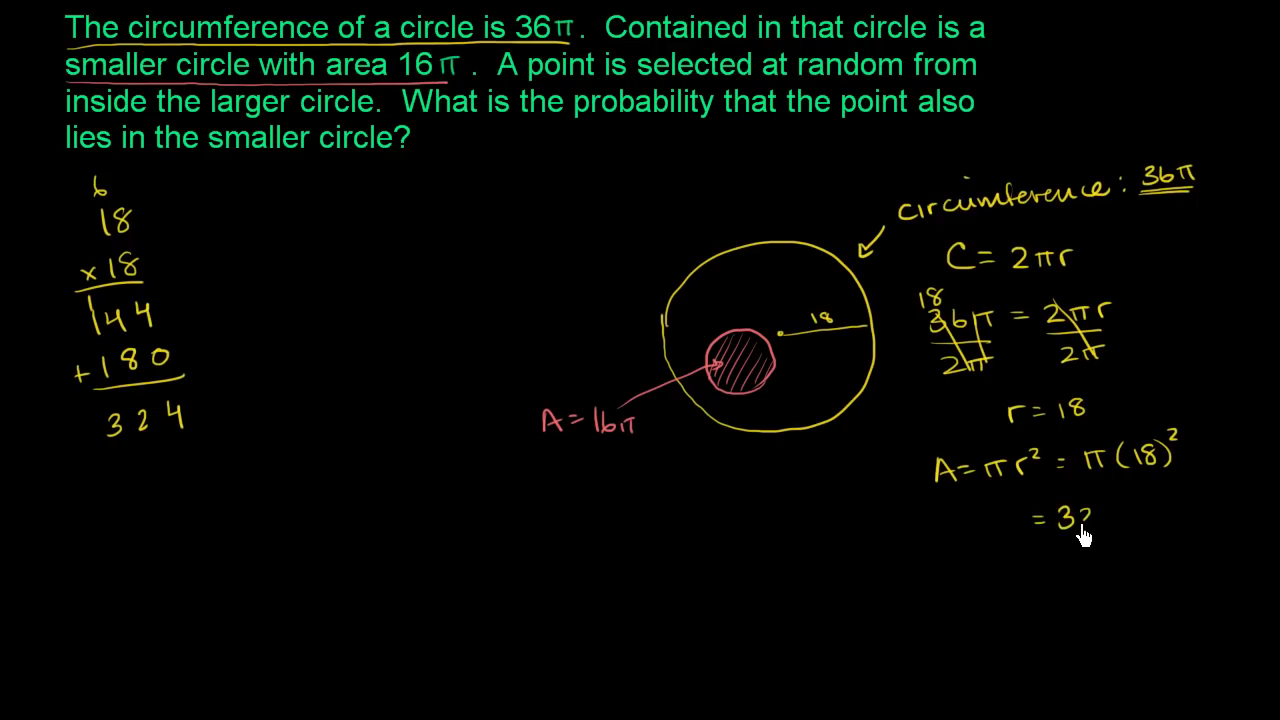 The circumference of a circle is 36π. Contained in that circle is a
smaller circle with area 16π. A point is selected at random from
inside the larger circle. What is the probability that the point also
lies in the smaller circle?
6
18
×18
144
+180
324
circumference: 36π
C = 2πr
18
36π = 2πr
2π 2π
18
r = 18
A = 16π
A = πr² = π(18)²
= 32